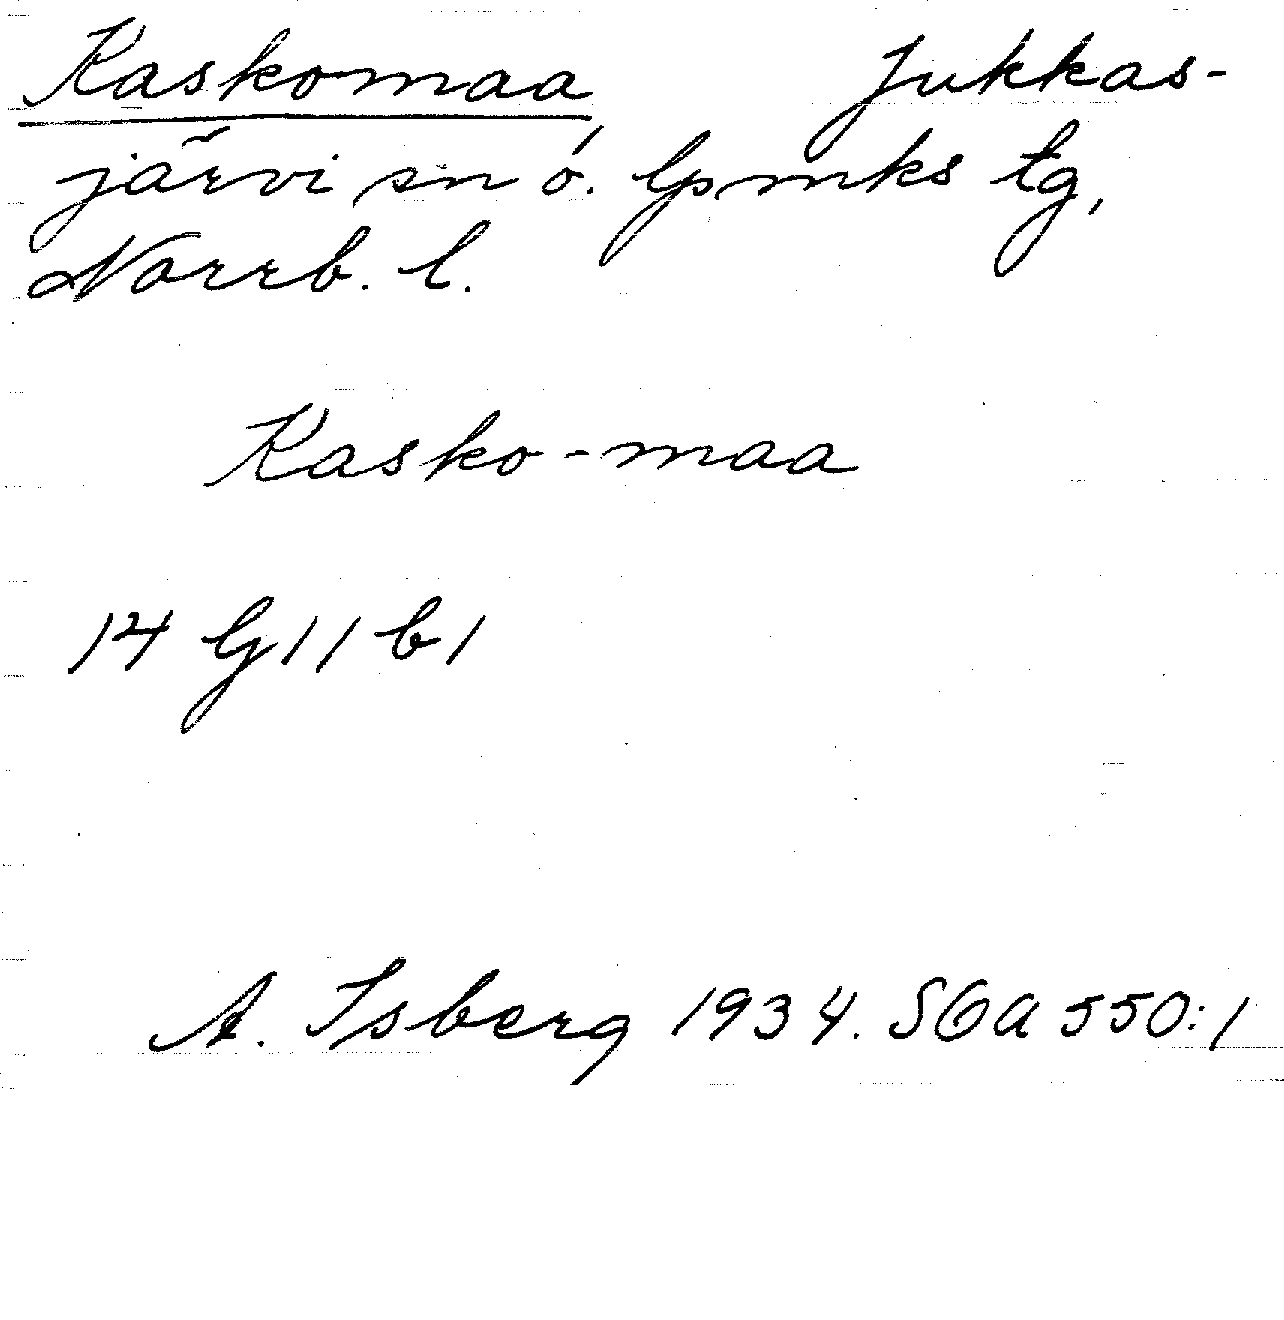 Kaskomaa Jukkas-
järvi sn o. Gpmks tg,
Norrb. l.
Kasko-maa
14 G 11 b 1
A. Isberg 1934. SOA 550:1